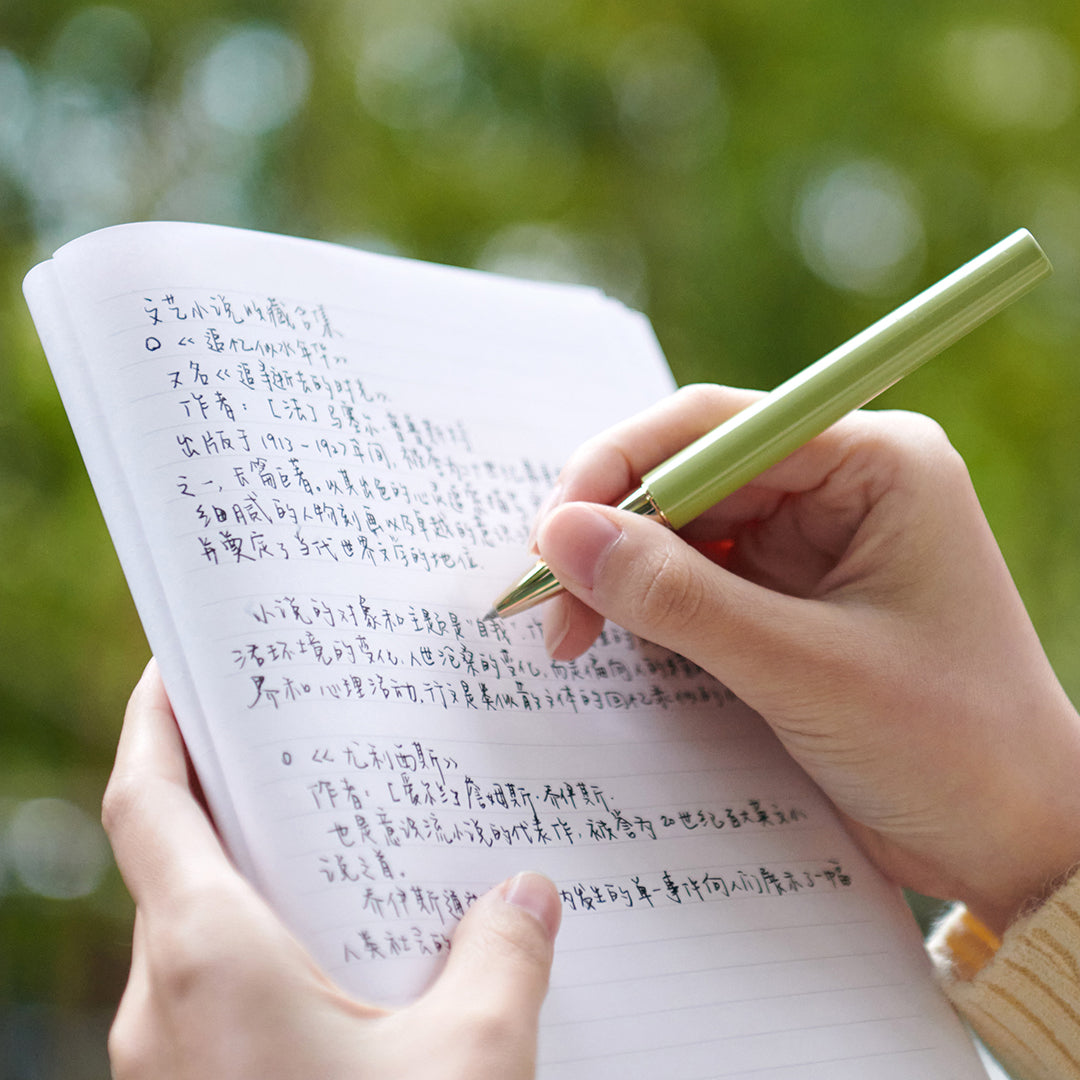 文艺小说收藏合集
○ 《追忆似水年华》
又名《追寻逝去的时光》
作者：[法]马塞尔·普鲁斯特
出版于1913-1927年间，被誉为
之一，长篇巨著。以其出色的心灵追索描
细腻的人物刻画以及卓越的意识
并奠定了当代世界文学的地位.
小说的对象和主题是"自我".
活环境的变化，人世沧桑的变化，而是偏向人的
界和心理活动，行文是类似散文体的回忆录
○ 《尤利西斯》
作者：[爱尔兰]詹姆斯·乔伊斯.
也是意识流小说的代表作，被誉为20世纪百大英文小
说之首.
乔伊斯通 内发生的单一事件向人们展示了一幅
人类社会的